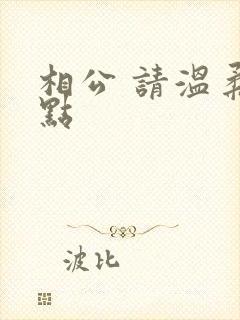 相公 請溫柔
點
波比